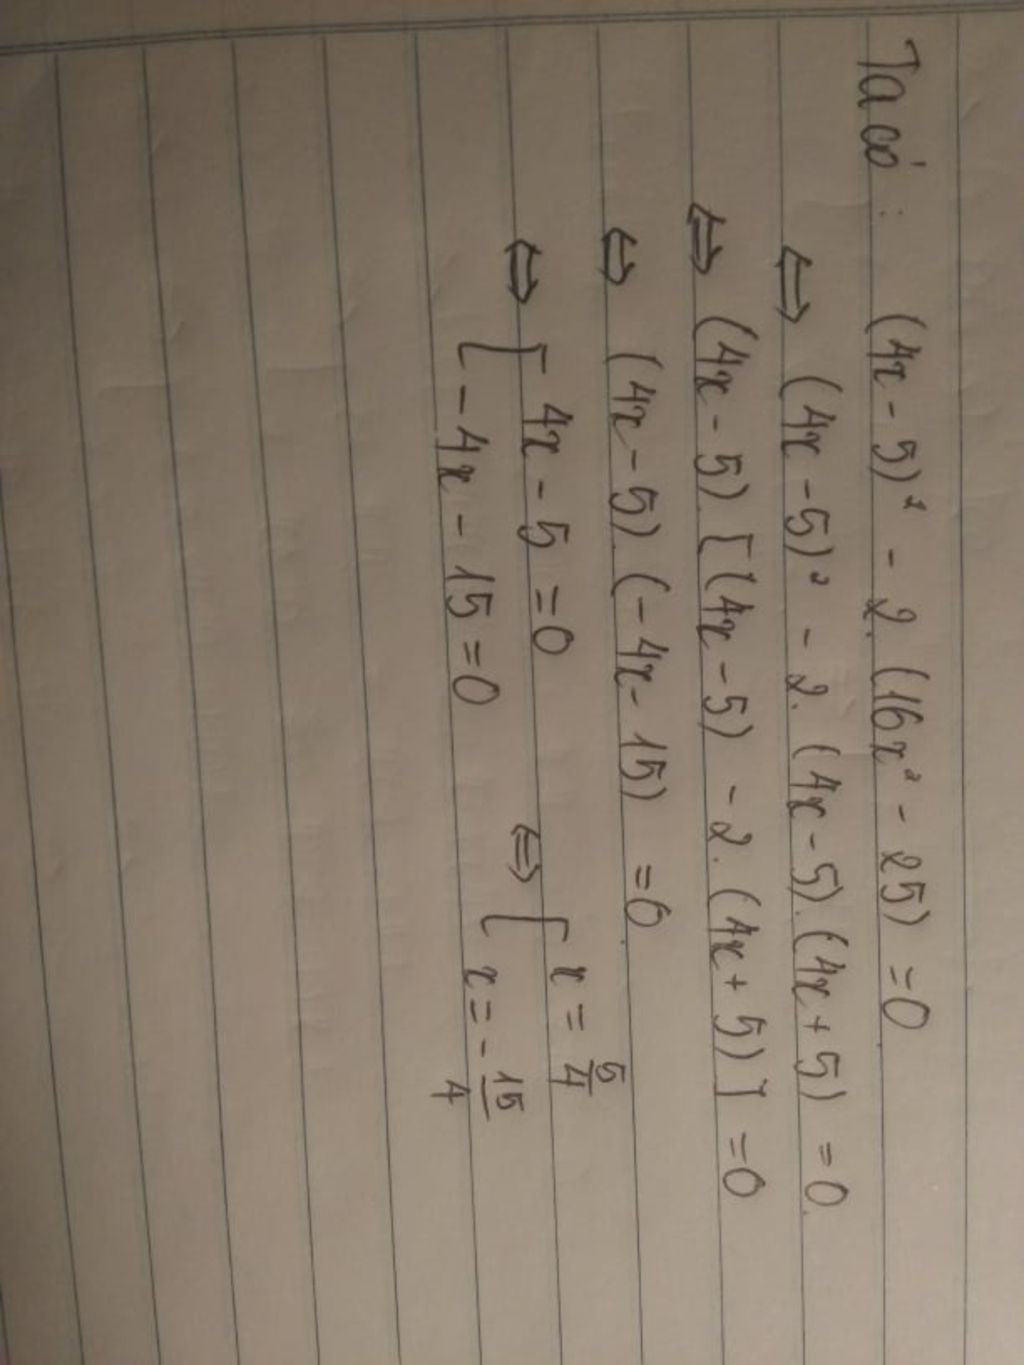 Ta có: (4x - 5)² - 2.(16x² - 25) = 0
⇔ (4x - 5)² - 2.(4x - 5).(4x + 5) = 0.
⇔ (4x - 5).[(4x - 5) - 2.(4x + 5)] = 0
⇔ (4x - 5).(-4x - 15) = 0.
⇔ [ 4x - 5 = 0 ⇔ [ x = 5/4
- 4x - 15 = 0 x = - 15/4